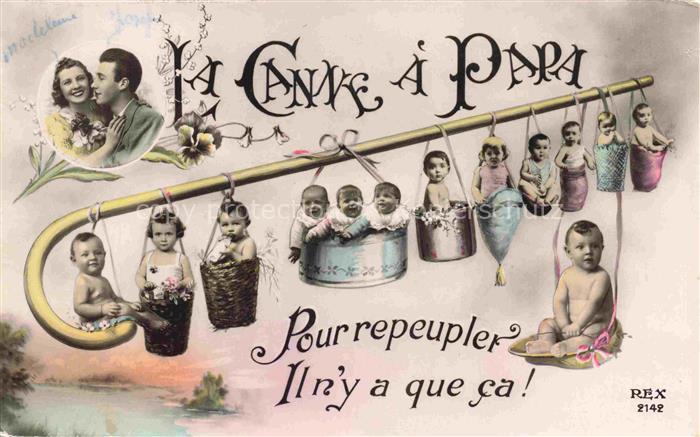 Madeleine Joseph
La Canne à Papa
copy protection Kopierschutz
Pour repeupler
Il n'y a que ça!
REX
2142